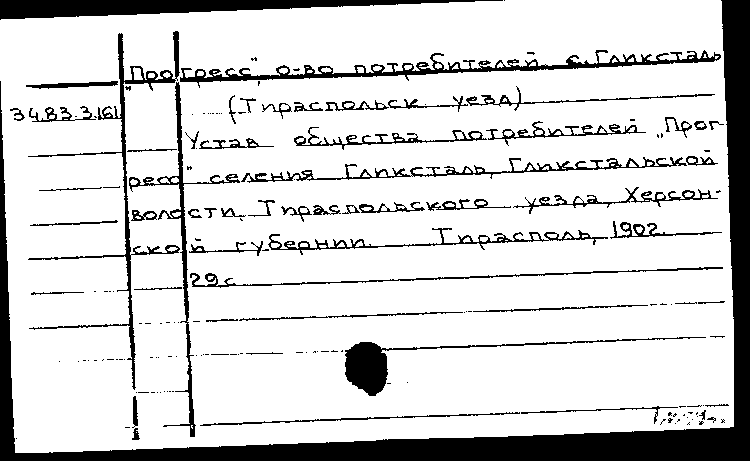 "Прогресс", о-во потребителей с. Гликсталь
34.83.3.161
(Тираспольск уезд)
Устав общества потребителей „Прог-
ресс" селения Гликсталь, Гликстальской
волости, Тираспольского уезда, Херсон-
ской губернии. Тирасполь, 1902.
29 с